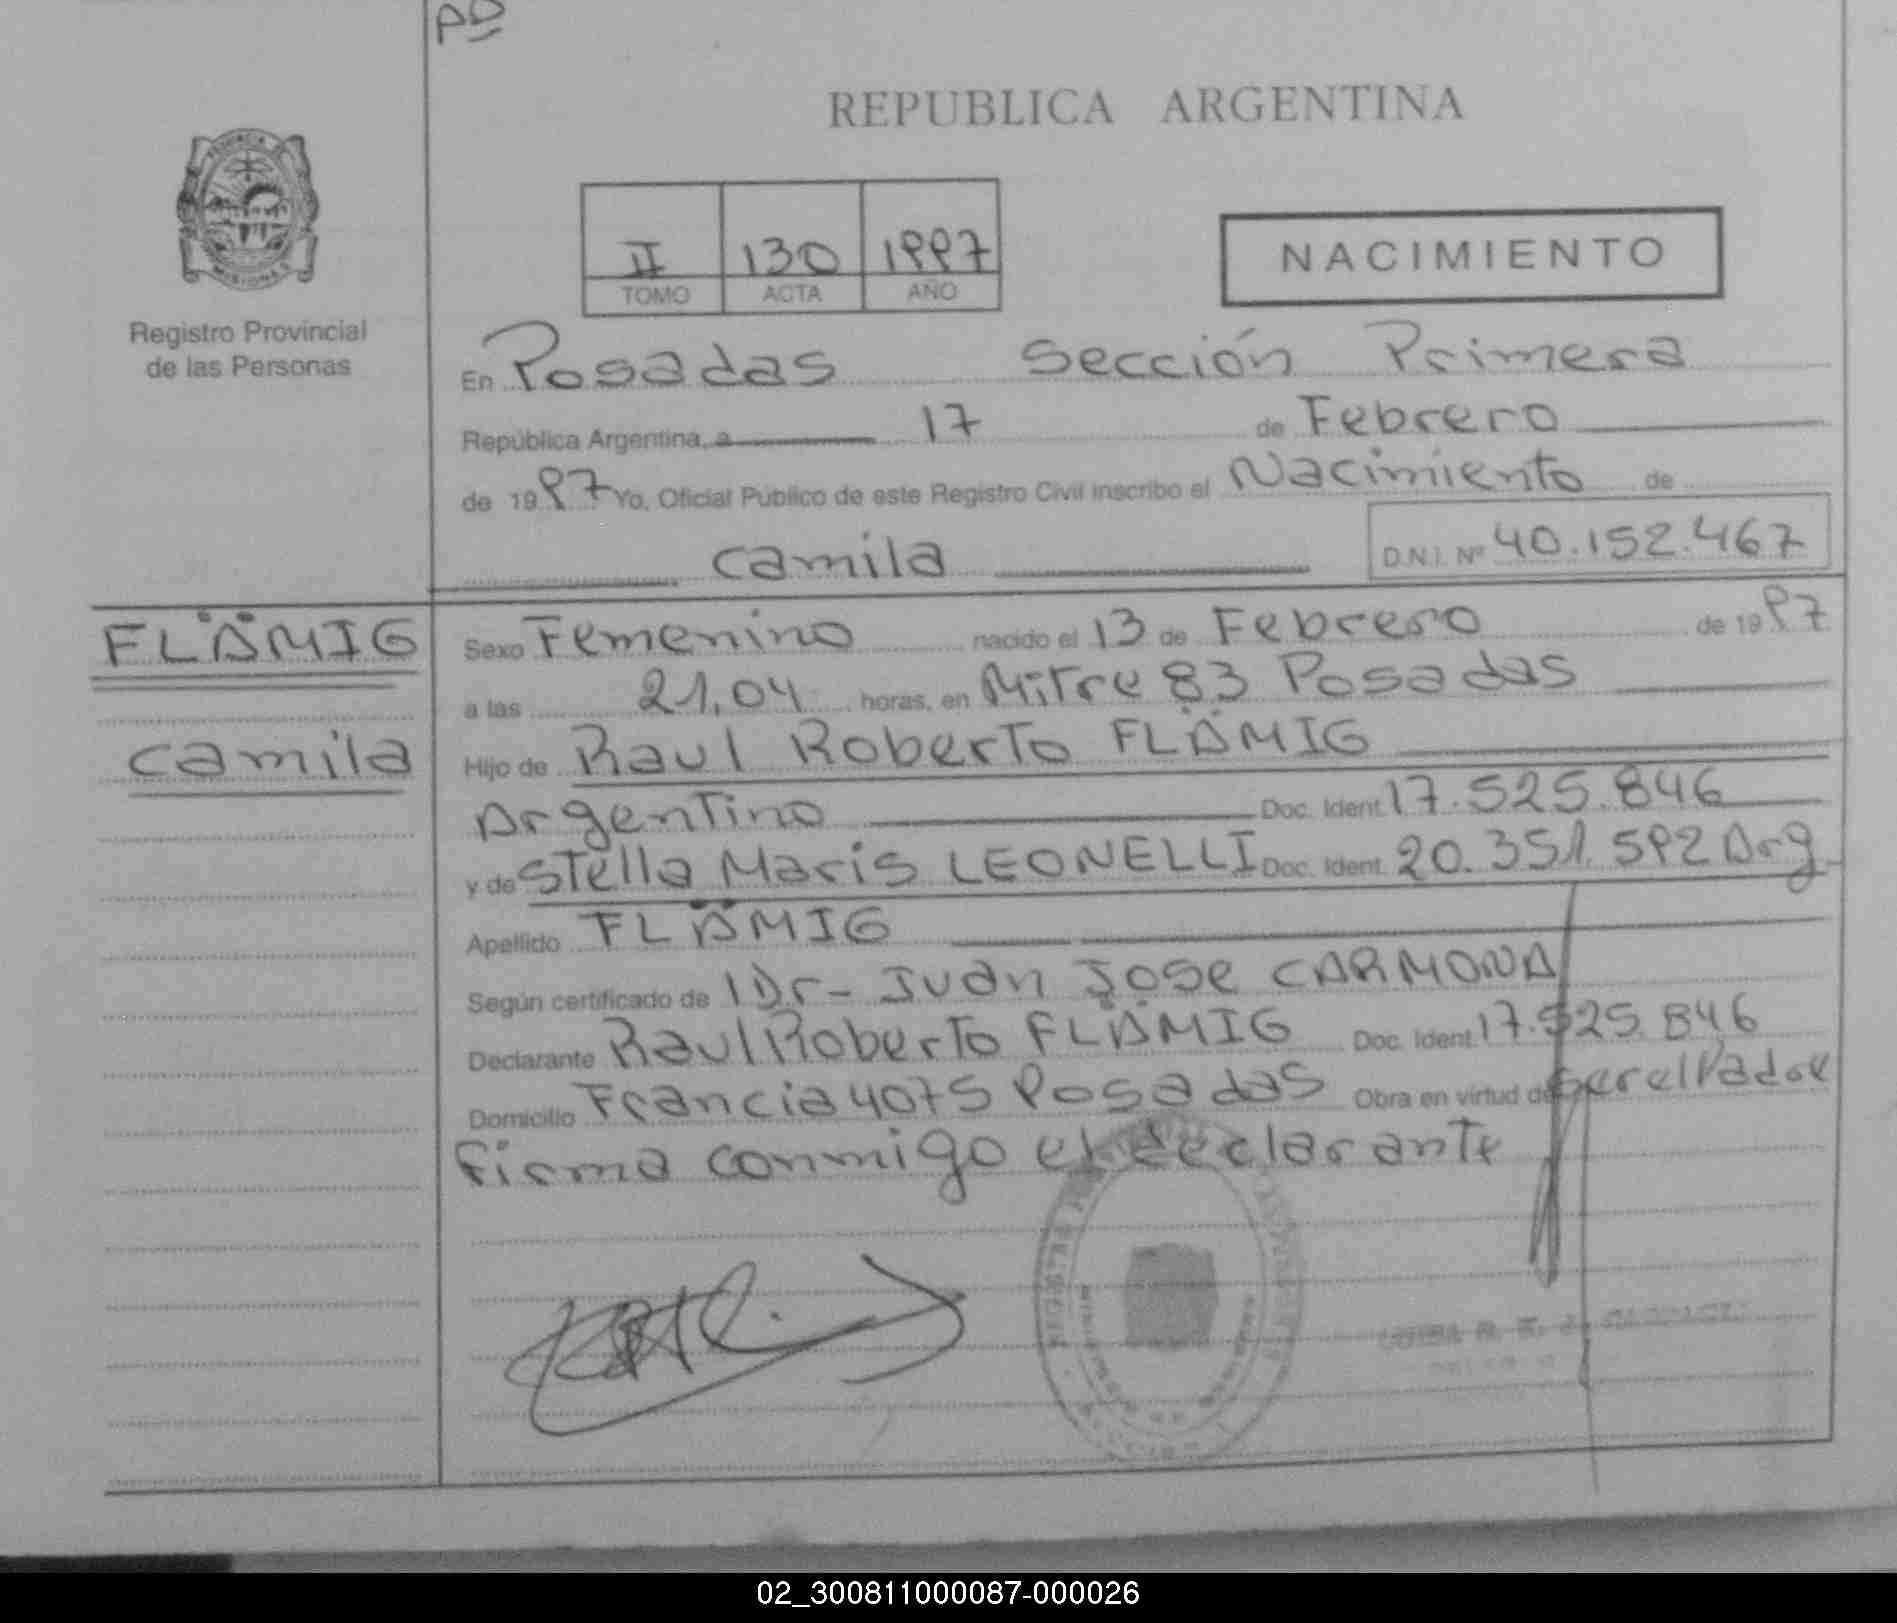 PD
REPUBLICA ARGENTINA
PROVINCIA DE
MISIONES
Registro Provincial
de las Personas
II 130 1997
TOMO ACTA AÑO
NACIMIENTO
En Posadas Sección Primera
República Argentina, a 17 de Febrero
de 1997 Yo, Oficial Público de este Registro Civil inscribo el Nacimiento de
Camila D.N.I. Nº 40.152.467
FLÄMIG
Camila
Sexo Femenino nacido el 13 de Febrero de 1997
a las 21,04 horas, en Mitre 83 Posadas
Hijo de Raul Roberto FLÄMIG
Argentino Doc. Ident. 17.525.846
y de Stella Maris LEONELLI Doc. Ident. 20.351.592 Arg
Apellido FLÄMIG
Según certificado de Dr- Juan Jose CARMONA
Declarante Raul Roberto FLÄMIG Doc. Ident. 17.525.846
Domicilio Francia 4075 Posadas Obra en virtud de ser el Padre
Firma conmigo el declarante
02_300811000087-000026